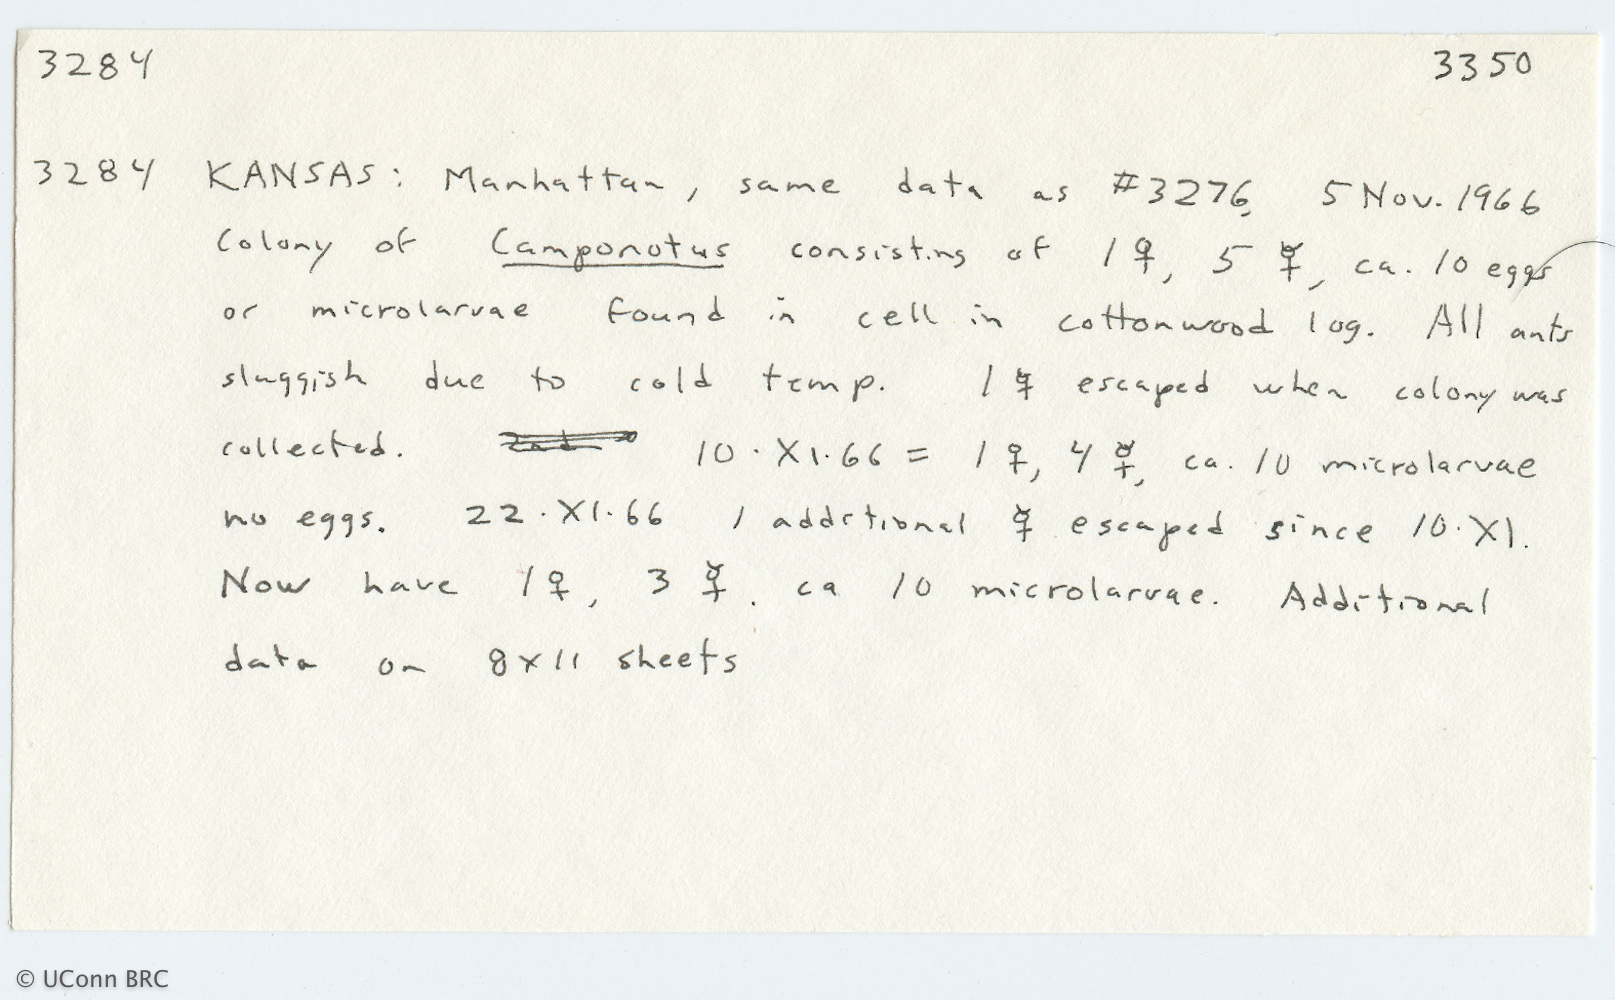 3284 3350
3284 KANSAS: Manhattan, same data as #3276, 5 Nov. 1966
Colony of Camponotus consisting of 1 ♀, 5 ☿, ca. 10 eggs
or microlarvae found in cell in cottonwood log. All ants
sluggish due to cold temp. 1 ☿ escaped when colony was
collected. 10.XI.66 = 1 ♀, 4 ☿, ca. 10 microlarvae
no eggs. 22.XI.66 1 additional ☿ escaped since 10.XI.
Now have 1♀, 3 ☿. ca 10 microlarvae. Additional
data on 8x11 sheets
© UConn BRC